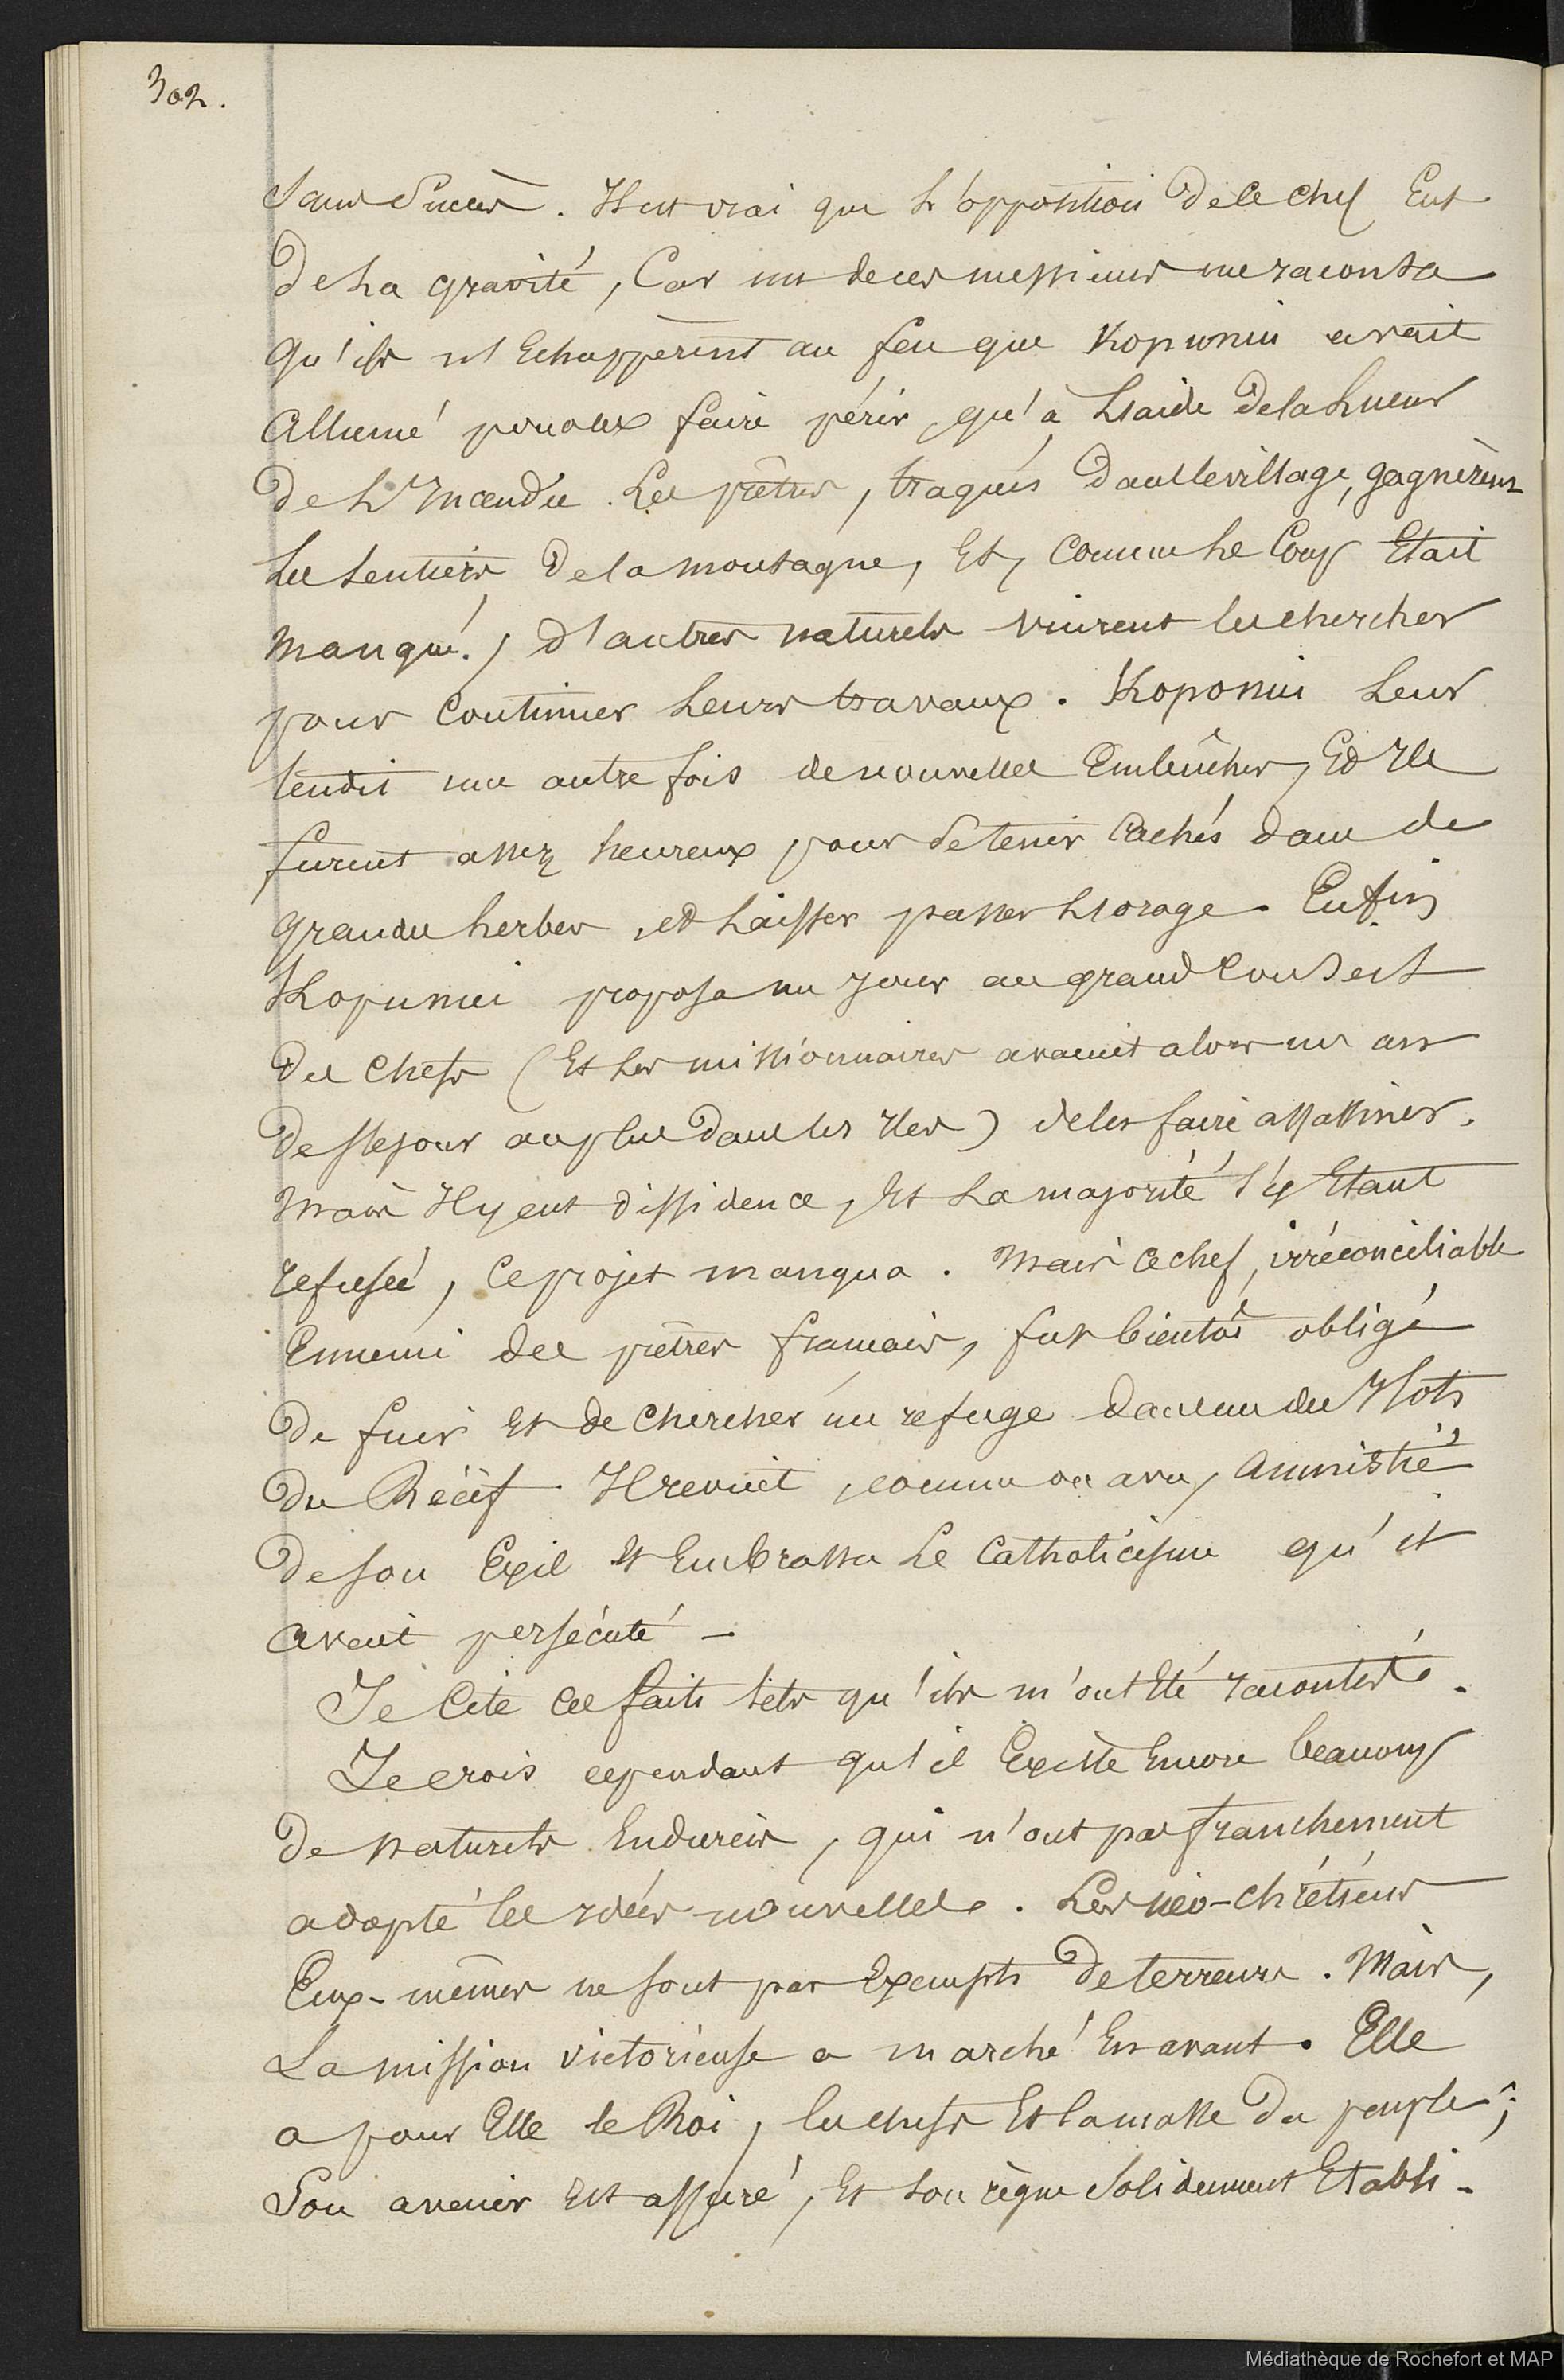 302.
Sans Succès. Il est vrai que l'opposition de ce chef Eut
de la gravité, Car un de ces messieurs me raconta
qu'ils n'Echappèrent au feu que Kopunui avait
Allumé pour les faire périr, qu'à l'aide de la lueur
de l'Incendie. Les prêtres, traqués dans le village, gagnèrent
les sentiers de la montagne, Et, comme le Coup Etait
manqué, d'autres naturels vinrent les chercher
pour Continuer leurs travaux. Koponui leur
tendit une autre fois de nouvelles Embûches, Et Ils
furent assez heureux pour se tenir Cachés dans de
grandes herbes, et laisser passer l'orage. Enfin
Kopunui proposa un jour au grand Conseil
des Chefs (Et les missionnaires avaient alors un an
de séjour au plus dans les Iles) de les faire assassiner.
Mais Il y eut dissidence, Et la majorité s'y Etant
refusée, Ce projet manqua. Mais ce chef, irréconciliable
Ennemi des prêtres français, fut bientôt obligé
de fuir Et de Chercher un refuge dans un des Ilots
du Récif. Il revint, comme on a vu, Amnistié
de son Exil Et Embrassa le Catholicisme qu'il
avait persécuté —
Je Cite ces faits tels qu'ils m'ont Eté racontés.
Je crois cependant qu'il Existe Encore beaucoup
de naturels Endurcis, qui n'ont pas franchement
adopté les idées nouvelles. Les néo-chrétiens
Eux-mêmes ne sont pas Exempts de terreurs. Mais,
La mission victorieuse a marché En avant. Elle
a pour Elle le Roi, les chefs Et la masse du peuple;
Son avenir Est assuré, Et son règne Solidement Etabli.
Médiathèque de Rochefort et MAP